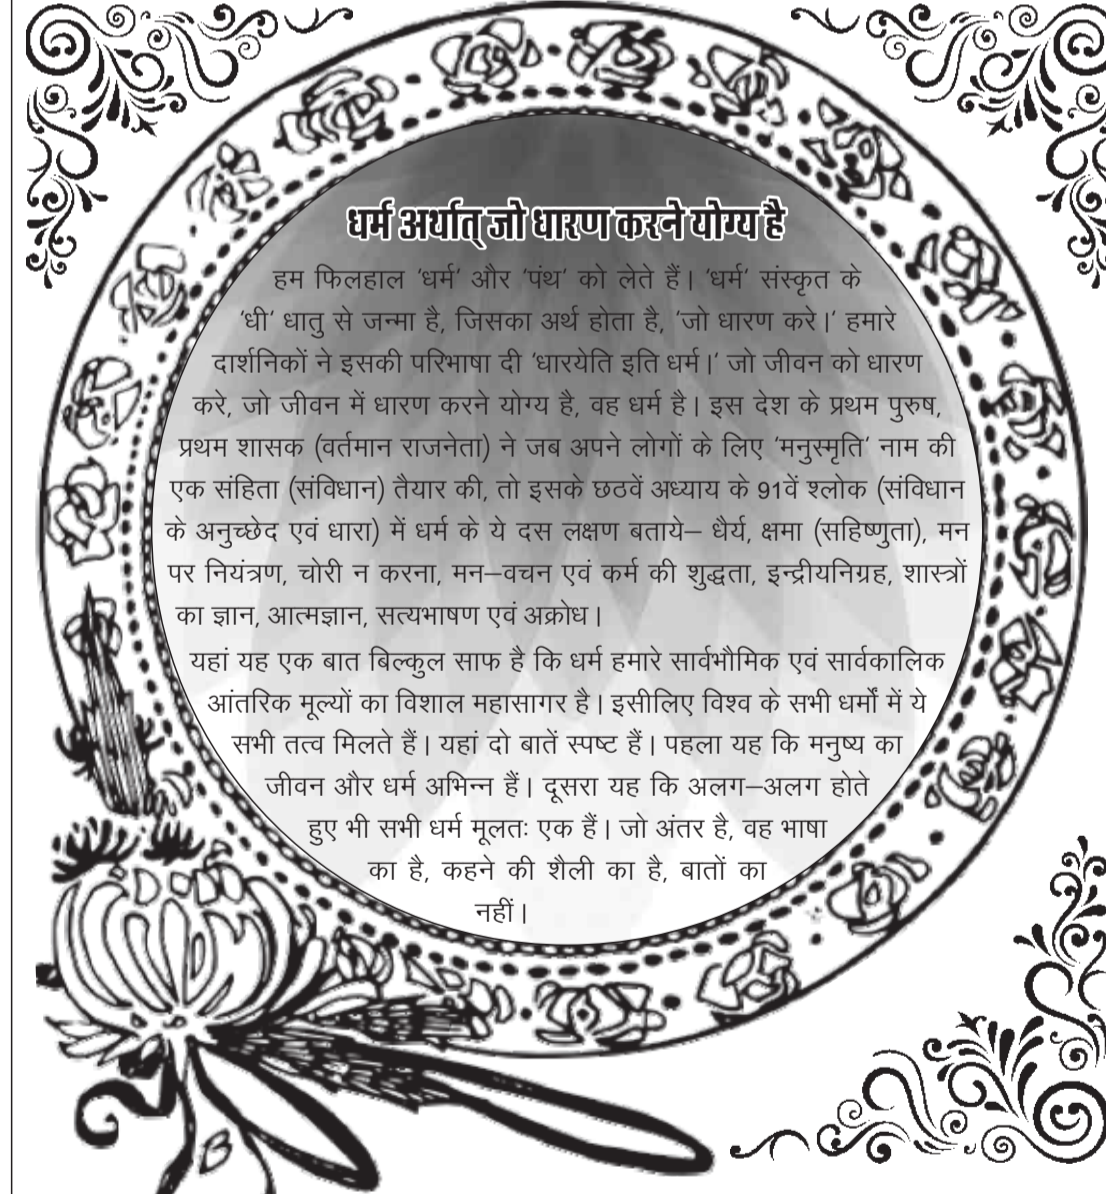 धर्म अर्थात् जो धारण करने योग्य है
हम फिलहाल ‘धर्म’ और ‘पंथ’ को लेते हैं। ‘धर्म’ संस्कृत के
‘धी’ धातु से जन्मा है, जिसका अर्थ होता है, ‘जो धारण करे।’ हमारे
दार्शनिकों ने इसकी परिभाषा दी ‘धारयेति इति धर्म।’ जो जीवन को धारण
करे, जो जीवन में धारण करने योग्य है, वह धर्म है। इस देश के प्रथम पुरुष,
प्रथम शासक (वर्तमान राजनेता) ने जब अपने लोगों के लिए ‘मनुस्मृति’ नाम की
एक संहिता (संविधान) तैयार की, तो इसके छठवें अध्याय के 91वें श्लोक (संविधान
के अनुच्छेद एवं धारा) में धर्म के ये दस लक्षण बताये– धैर्य, क्षमा (सहिष्णुता), मन
पर नियंत्रण, चोरी न करना, मन–वचन एवं कर्म की शुद्धता, इन्द्रीयनिग्रह, शास्त्रों
का ज्ञान, आत्मज्ञान, सत्यभाषण एवं अक्रोध।
यहां यह एक बात बिल्कुल साफ है कि धर्म हमारे सार्वभौमिक एवं सार्वकालिक
आंतरिक मूल्यों का विशाल महासागर है। इसीलिए विश्व के सभी धर्मों में ये
सभी तत्व मिलते हैं। यहां दो बातें स्पष्ट हैं। पहला यह कि मनुष्य का
जीवन और धर्म अभिन्न हैं। दूसरा यह कि अलग–अलग होते
हुए भी सभी धर्म मूलतः एक हैं। जो अंतर है, वह भाषा
का है, कहने की शैली का है, बातों का
नहीं।